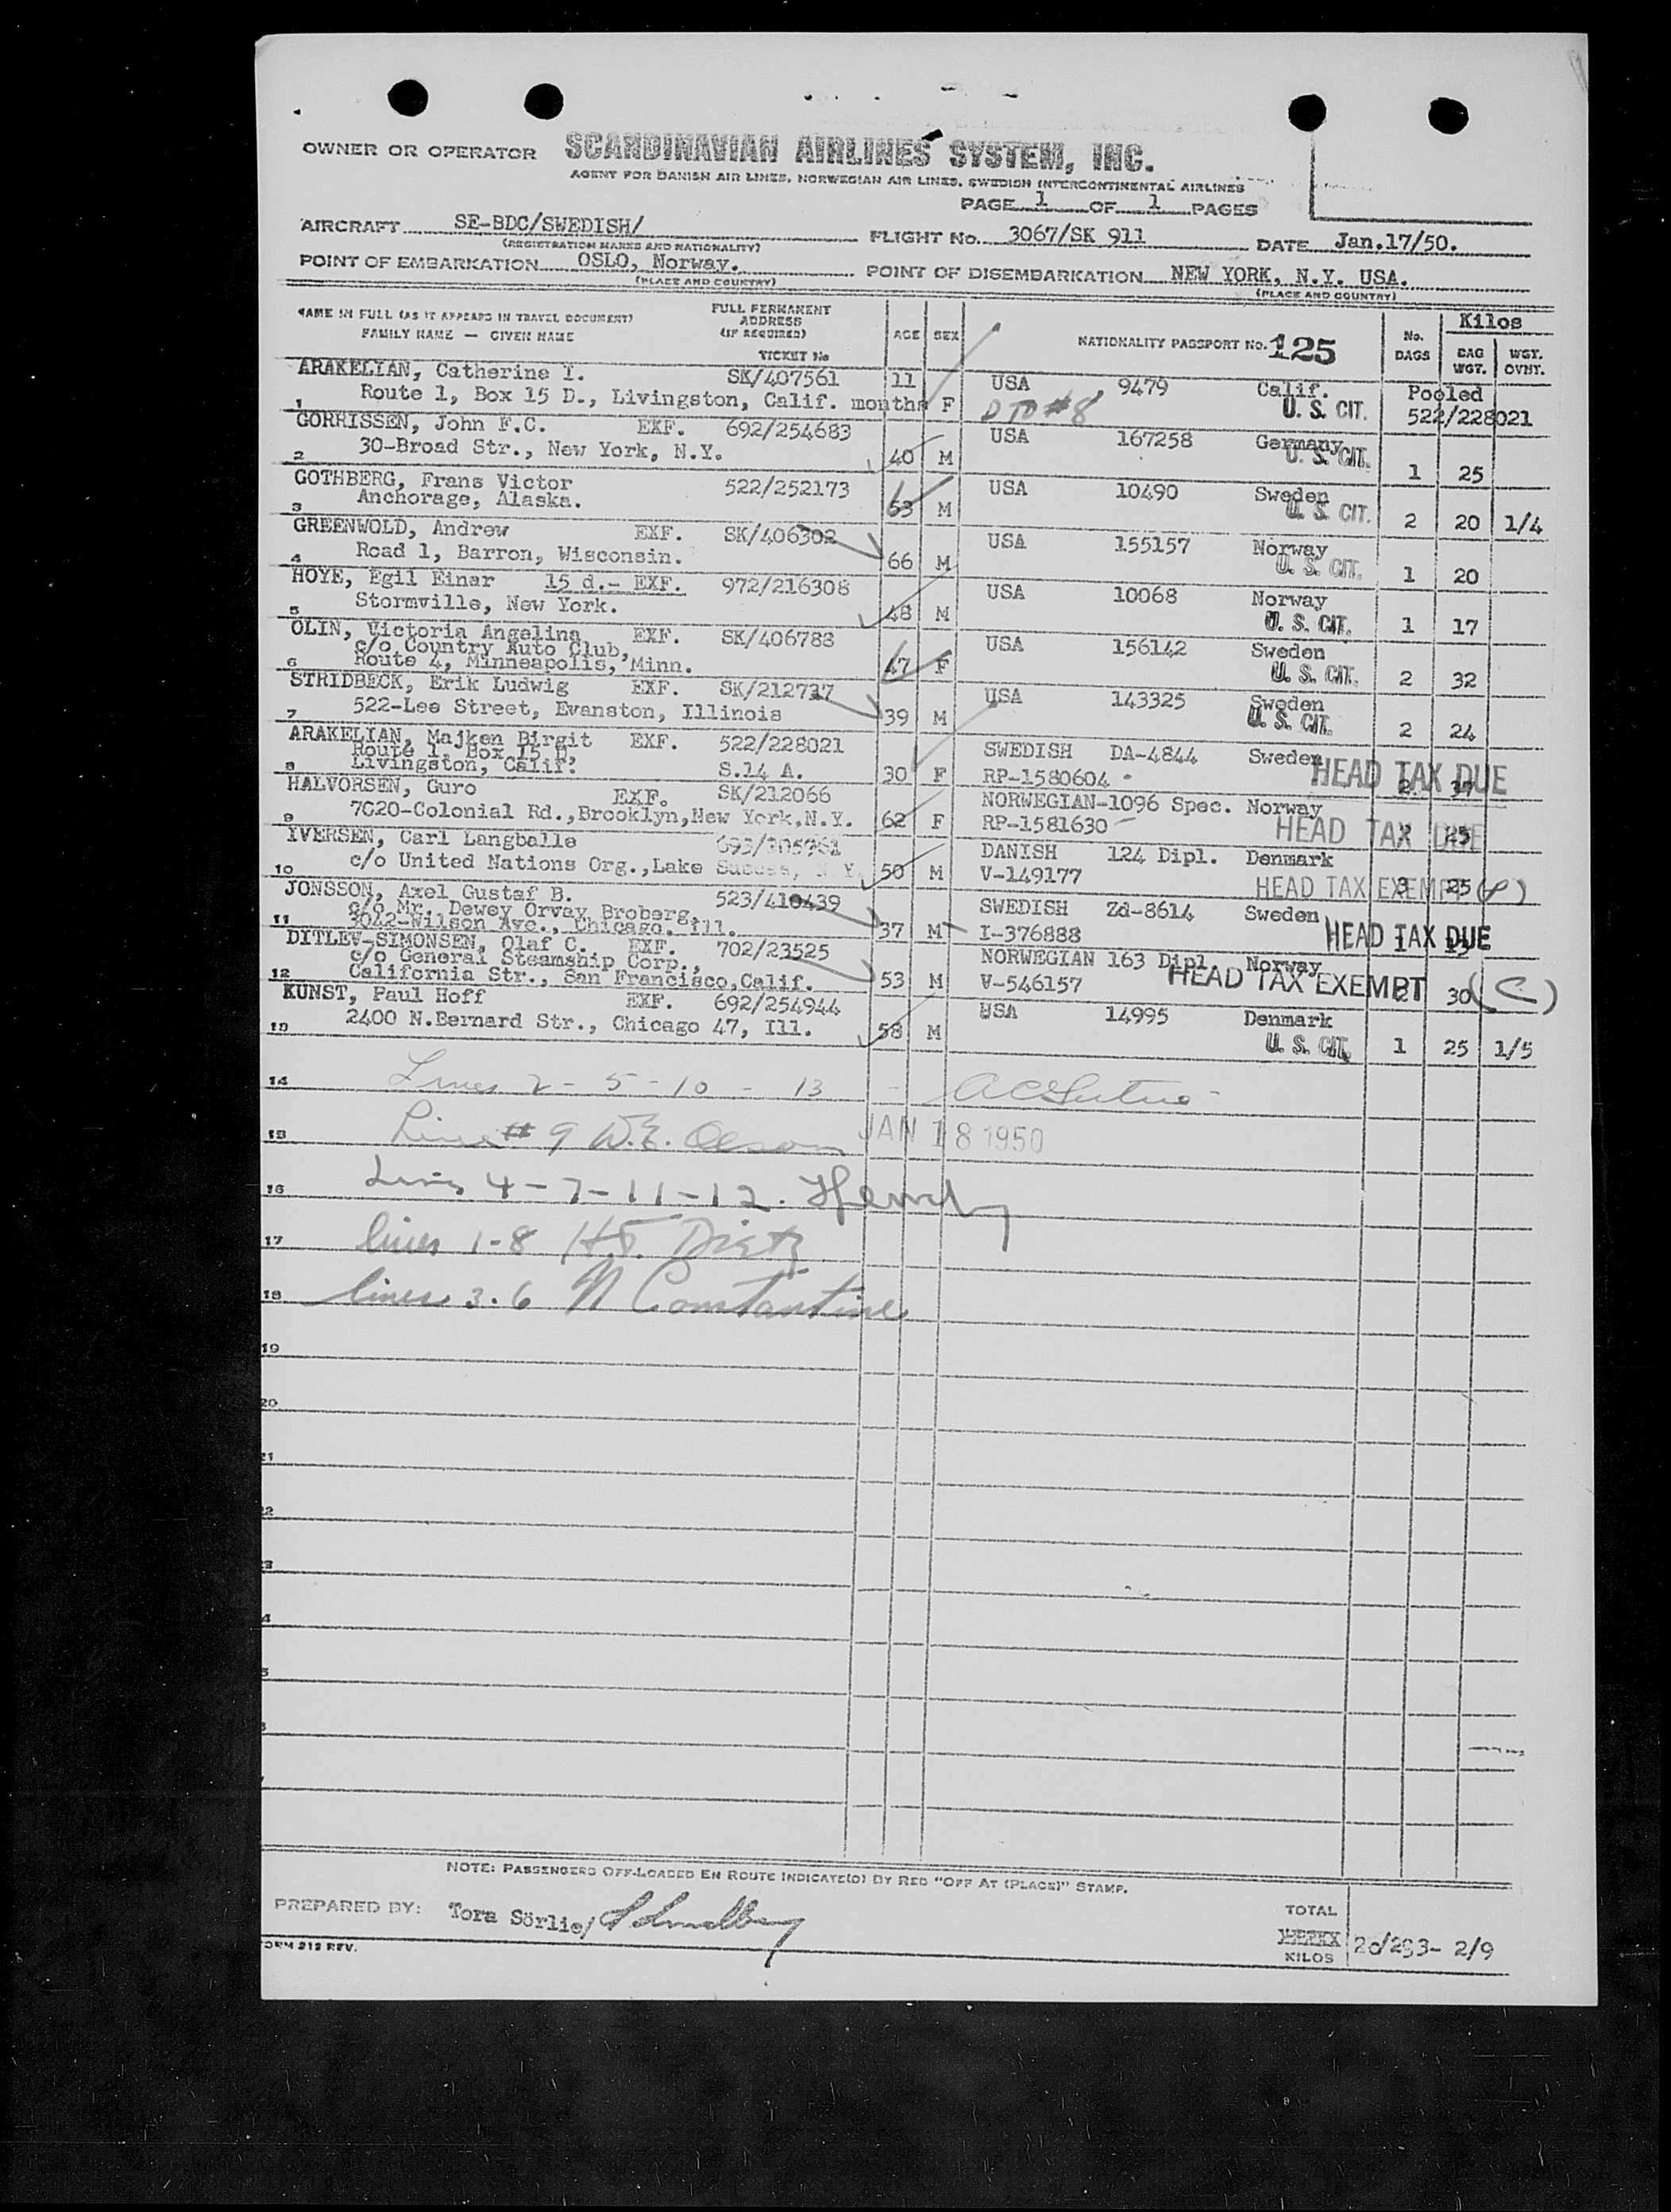 OWNER OR OPERATOR SCANDINAVIAN AIRLINES SYSTEM, INC.
AGENT FOR DANISH AIR LINES, NORWEGIAN AIR LINES, SWEDISH INTERCONTINENTAL AIRLINES
PAGE 1 OF 1 PAGES
AIRCRAFT SE-BDC/SWEDISH/ FLIGHT No. 3067/SK 911 DATE Jan.17/50.
(REGISTRATION MARKS AND NATIONALITY)
POINT OF EMBARKATION OSLO, Norway. POINT OF DISEMBARKATION NEW YORK, N.Y. USA.
(PLACE AND COUNTRY) (PLACE AND COUNTRY)
NAME IN FULL (AS IT APPEARS IN TRAVEL DOCUMENT) FULL PERMANENT ADDRESS (IF REQUIRED) AGE SEX NATIONALITY PASSPORT No. 125 No. BAGS Kilos
FAMILY NAME — GIVEN NAME TICKET No BAG WGT. WGT. OVHT.
ARAKELIAN, Catherine I. SK/407561 11 USA 9479 Calif. Pooled
1 Route 1, Box 15 D., Livingston, Calif. months F D TO #8 U. S. CIT. 522/228021
GORRISSEN, John F.C. EXF. 692/254683 USA 167258 Germany
2 30-Broad Str., New York, N.Y. 40 M U. S. CIT. 1 25
GOTHBERG, Frans Victor 522/252173 USA 10490 Sweden
3 Anchorage, Alaska. 63 M U. S. CIT. 2 20 1/4
GREENWOLD, Andrew EXF. SK/406302 USA 155157 Norway
4 Road 1, Barron, Wisconsin. 66 M U. S. CIT. 1 20
HOYE, Egil Einar 15 d.- EXF. 972/216308 USA 10068 Norway
5 Stormville, New York. 48 M U. S. CIT. 1 17
OLIN, Victoria Angelina EXF. SK/406788 USA 156142 Sweden
c/o Country Auto Club,
6 Route 4, Minneapolis, Minn. 47 F U. S. CIT. 2 32
STRIDBECK, Erik Ludwig EXF. SK/212737 USA 143325 Sweden
7 522-Lee Street, Evanston, Illinois 39 M U. S. CIT. 2 24
ARAKELIAN, Majken Birgit EXF. 522/228021 SWEDISH DA-4844 Sweden
Route 1, Box 15 D.
8 Livingston, Calif. S.14 A. 30 F RP-1580604 HEAD TAX DUE 2
HALVORSEN, Guro EXF. SK/212066 NORWEGIAN-1096 Spec. Norway
9 7020-Colonial Rd.,Brooklyn,New York,N.Y. 62 F RP-1581630 HEAD TAX DUE 25
IVERSEN, Carl Langballe DANISH 124 Dipl. Denmark
10 c/o United Nations Org.,Lake Success, N.Y. 50 M V-149177 HEAD TAX EXEMPT 3 25
JONSSON, Axel Gustaf B. 523/410439 SWEDISH Zd-8614 Sweden
c/o Mr. Dewey Orvay Broberg,
11 3042-Wilson Ave., Chicago, Ill. 37 M I-376888 HEAD TAX DUE 1
DITLEV-SIMONSEN, Olaf C. EXF. 702/23525 NORWEGIAN 163 Dipl. Norway
c/o General Steamship Corp.,
12 California Str., San Francisco,Calif. 53 M V-546157 HEAD TAX EXEMPT 2 30 (C)
KUNST, Paul Hoff EXF. 692/254944 USA 14995 Denmark
13 2400 N.Bernard Str., Chicago 47, Ill. 58 M U. S. CIT. 1 25 1/5
14 Lines 2 - 5 - 10 - 13 -
15 Line # 9 W.E. Olson JAN 18 1950
16 Lines 4-7-11-12.
17 lines 1-8 H.F. Dietz
18 lines 3.6 N Constantine
19
20
21
22
23
NOTE: PASSENGERS OFF-LOADED EN ROUTE INDICATE(D) BY RED "OFF AT (PLACE)" STAMP.
PREPARED BY: Tora Sörlie/
TOTAL
KILOS 20/293- 2/9
FORM 212 REV.